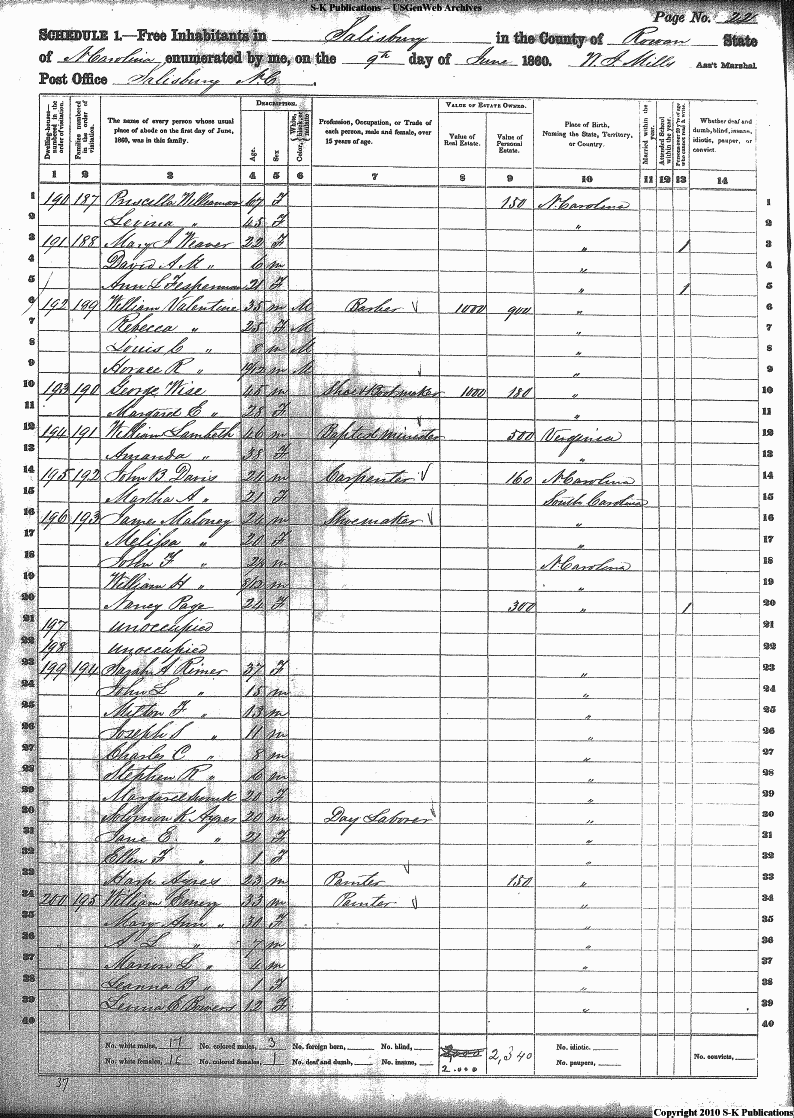 S-K Publications -- USGenWeb Archives
Page No. 22
SCHEDULE 1.—Free Inhabitants in Salisbury in the County of Rowan State
of N Carolina enumerated by me, on the 9th day of June 1860. Ass't Marshal
Post Office Salisbury N.C.
Dwelling-houses—numbered in the order of visitation.
Families numbered in the order of visitation.
The name of every person whose usual place of abode on the first day of June, 1860, was in this family.
DESCRIPTION.
Age.
Sex
Color, White, black, or mulatto
Profession, Occupation, or Trade of each person, male and female, over 15 years of age.
VALUE OF ESTATE OWNED.
Value of Real Estate.
Value of Personal Estate.
Place of Birth, Naming the State, Territory, or Country.
Married within the year.
Attended School within the year.
Whether deaf and dumb, blind, insane, idiotic, pauper, or convict.
1 2 3 4 5 6 7 8 9 10 11 12 13 14
1 190 187 Priscilla Williamson 67 F 150 N Carolina 1
2 Levina " 45 F " 2
3 191 188 Mary J Weaver 22 F " 1 3
4 David A M " 6 m " 4
5 Ann L Fesperman 21 F " 1 5
6 192 189 William Valentine 35 m M Barber 1000 900 " 6
7 Rebecca " 25 F M " 7
8 Louis C " 8 m M " 8
9 Horace R " m M " 9
10 193 190 George Wise 45 m Shoe & Bootmaker 1000 180 " 10
11 Margaret E " 28 F " 11
12 194 191 William Lambeth 46 m Baptist Minister 500 Virginia 12
13 Amanda " 38 F " 13
14 195 192 John B Davis 24 m Carpenter 160 N Carolina 14
15 Martha A " 21 F South Carolina 15
16 196 193 James Maloney 24 m Shoemaker " 16
17 Melissa " 20 F " 17
18 John F " m N Carolina 18
19 William H " m " 19
20 Nancy Page 24 F 300 " 1 20
21 197 unoccupied 21
22 198 unoccupied 22
23 199 194 Sarah A Rimer 37 F " 23
24 John L " 15 m " 24
25 Milton F " 13 m " 25
26 Joseph S " 11 m " 26
27 Charles C " 8 m " 27
28 Stephen R " 6 m " 28
29 Margaret 20 F " 29
30 Solomon K Ayres 20 m Day Laborer " 30
31 Jane E. " 21 F " 31
32 Ellen F " 1 F " 32
33 Ayres 23 m Painter 150 " 33
34 200 195 William Emery 33 m Painter " 34
35 Mary Ann " 30 F " 35
36 A L " 7 m " 36
37 Marion L " 4 m " 37
38 Leanna B " 1 F " 38
39 E Bowers 12 F " 39
40 40
No. white males, 17 No. colored males, 3 No. foreign born, No. blind, No. idiotic,
No. white females, No. colored females, 1 No. deaf and dumb, No. insane, 2.000 2,340 No. paupers, No. convicts,
37
Copyright 2010 S-K Publications